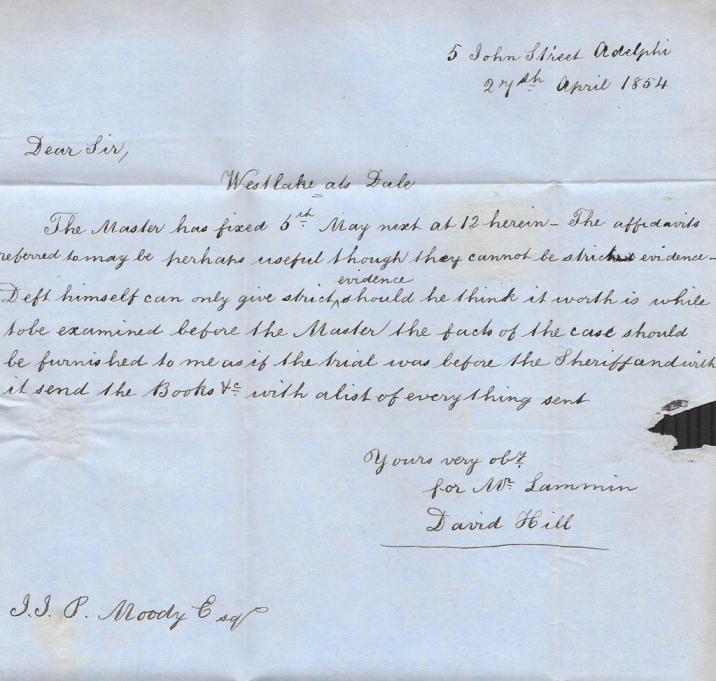 5 John Street Adelphi
27th April 1854
Dear Sir,
Westlake ats Dale
The Master has fixed 5th May next at 12 herein – The affidavits
referred to may be perhaps useful though they cannot be strict evidence –
evidence
Deft himself can only give strict ^ should he think it worth is while
to be examined before the Master the facts of the case should
be furnished to me as if the trial was before the Sheriff and with
it send the Books &c with a list of everything sent
Yours very obt
for Mr Lammin
David Hill
J. J. P. Moody Esq